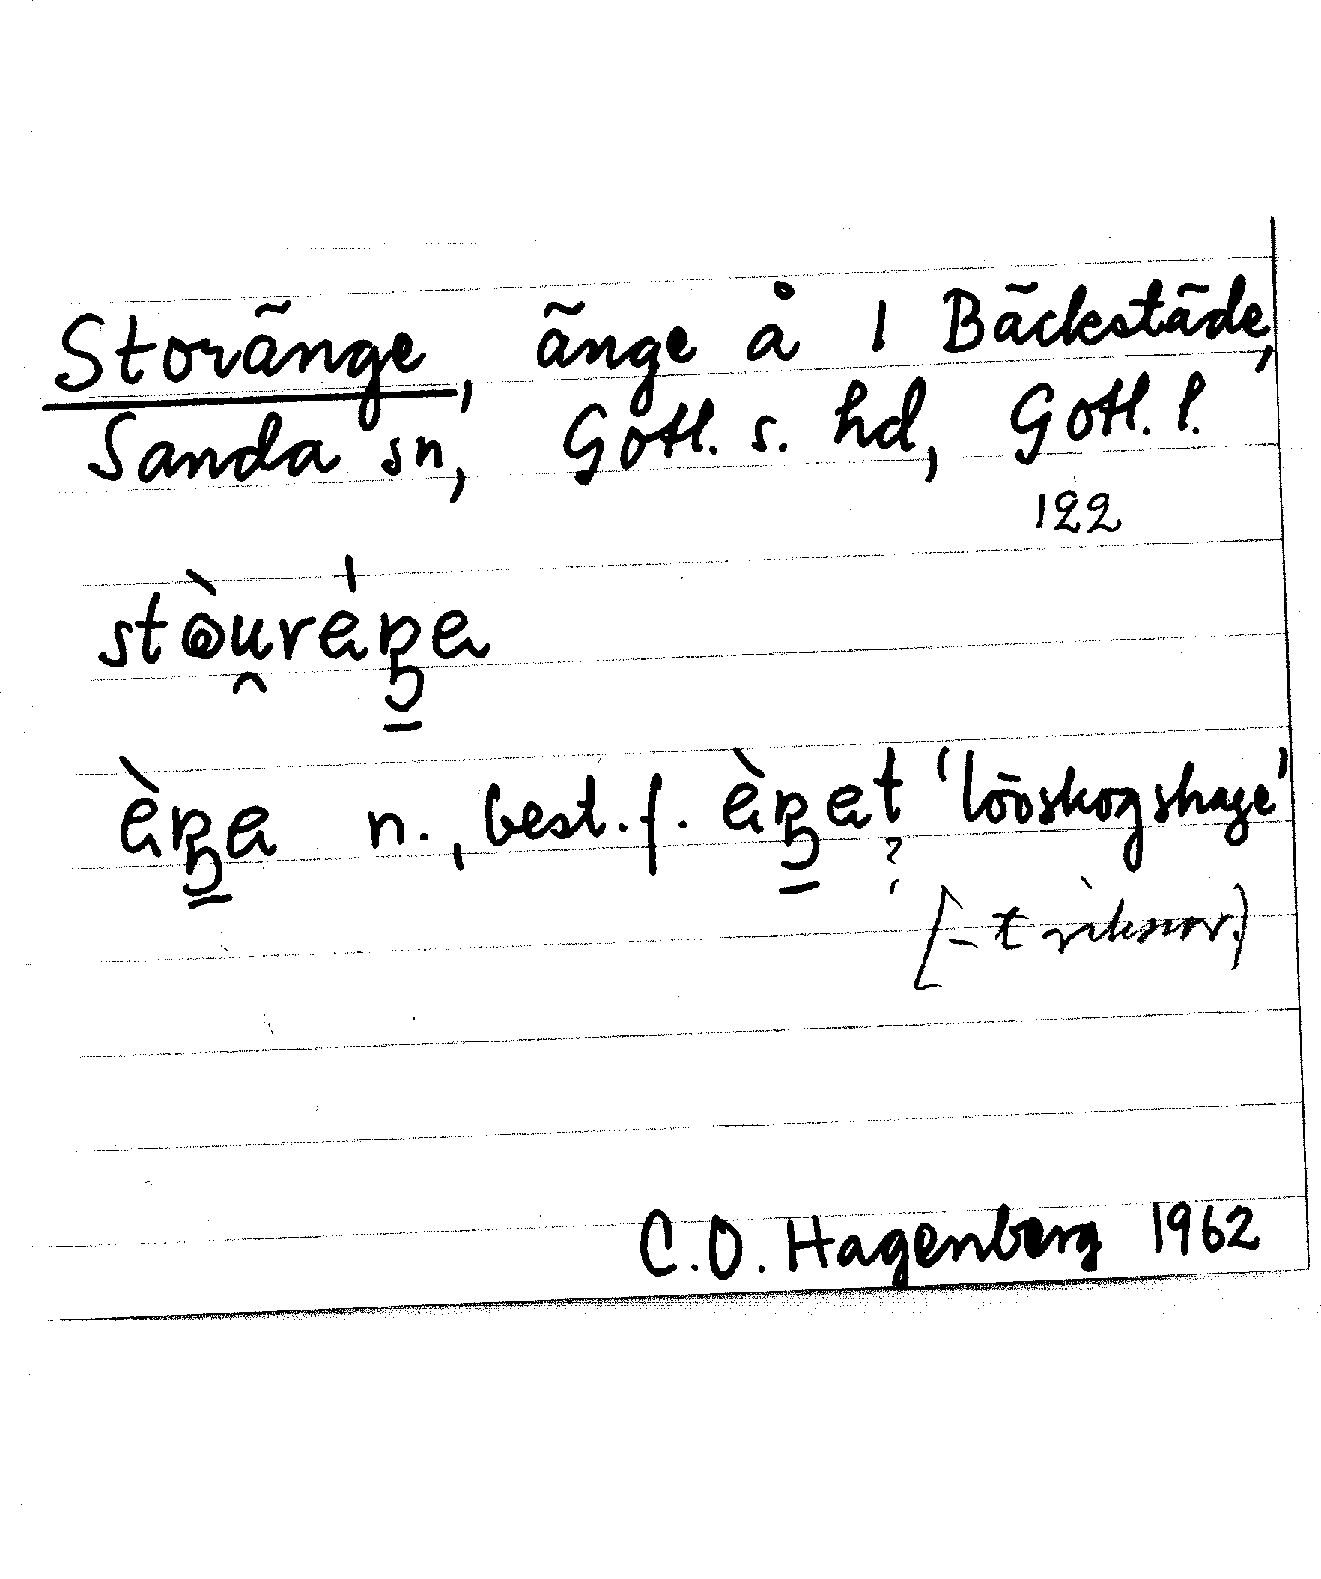 Storänge, änge å 1 Bäckstäde,
Sanda sn, Gotl. s. hd, Gotl. l.
122
n., best. f. 'lövskogshage'
?
[-t
C.O. Hagenberg 1962